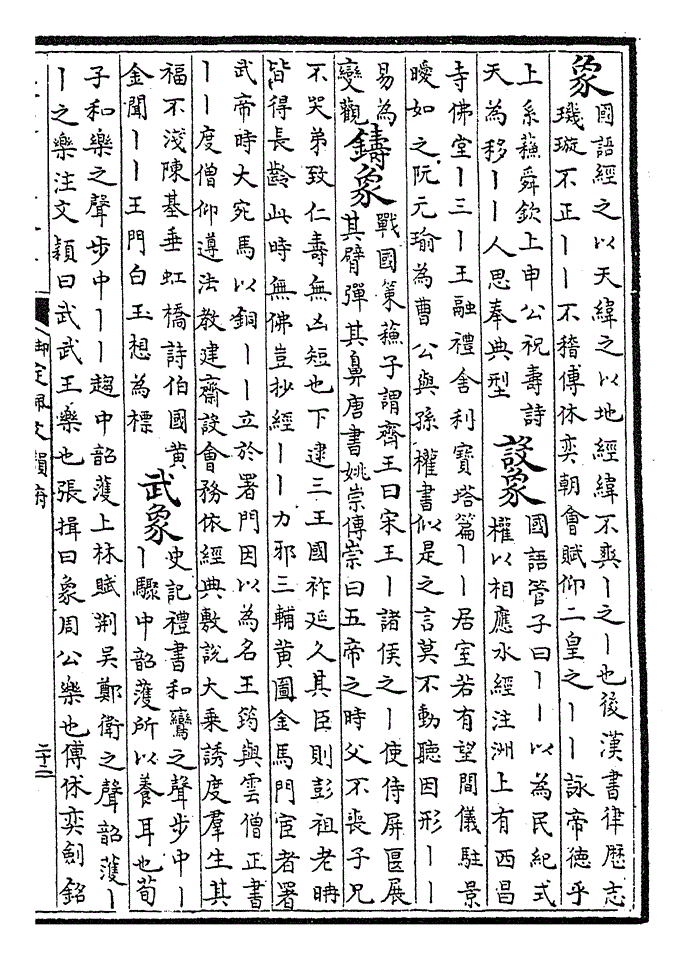 象
國語經之以天緯之以地經緯不爽丨之丨也後漢書律歷志
璣璇不正丨丨不稽傅休奕朝會賦仰二皇之丨丨詠帝德乎
上系蘇舜欽上申公祝壽詩
天為移丨丨人思奉典型
設象
國語管子曰丨丨以為民紀式
權以相應水經注洲上有西昌
寺佛堂丨三丨王融禮舍利寶塔篇丨丨居室若有望間儀駐景
曖如之阮元瑜為曹公與孫權書似是之言莫不動聽因形丨丨
易為
變觀
鑄象
戰國策蘇子謂齊王曰宋王丨諸侯之丨使侍屏匽展
其臂彈其鼻唐書姚崇傳崇曰五帝之時父不喪子兄
不哭弟致仁壽無凶短也下逮三王國祚延久其臣則彭祖老聃
皆得長齡此時無佛豈抄經丨丨力邪三輔黃圖金馬門宦者署
武帝時大宛馬以銅丨丨立於署門因以為名王筠與雲僧正書
丨丨度僧仰遵法教建齋設會務依經典敷說大乘誘度羣生其
福不淺陳基垂虹橋詩伯國黃
金聞丨丨王門白玉想為標
武象
史記禮書和鸞之聲步中丨
丨驟中韶濩所以養耳也荀
子和樂之聲步中丨丨趨中韶濩上林賦荆吳鄭衛之聲韶濩丨
丨之樂注文穎曰武武王樂也張揖曰象周公樂也傅休奕劍銘
御定佩文韻府
二十二